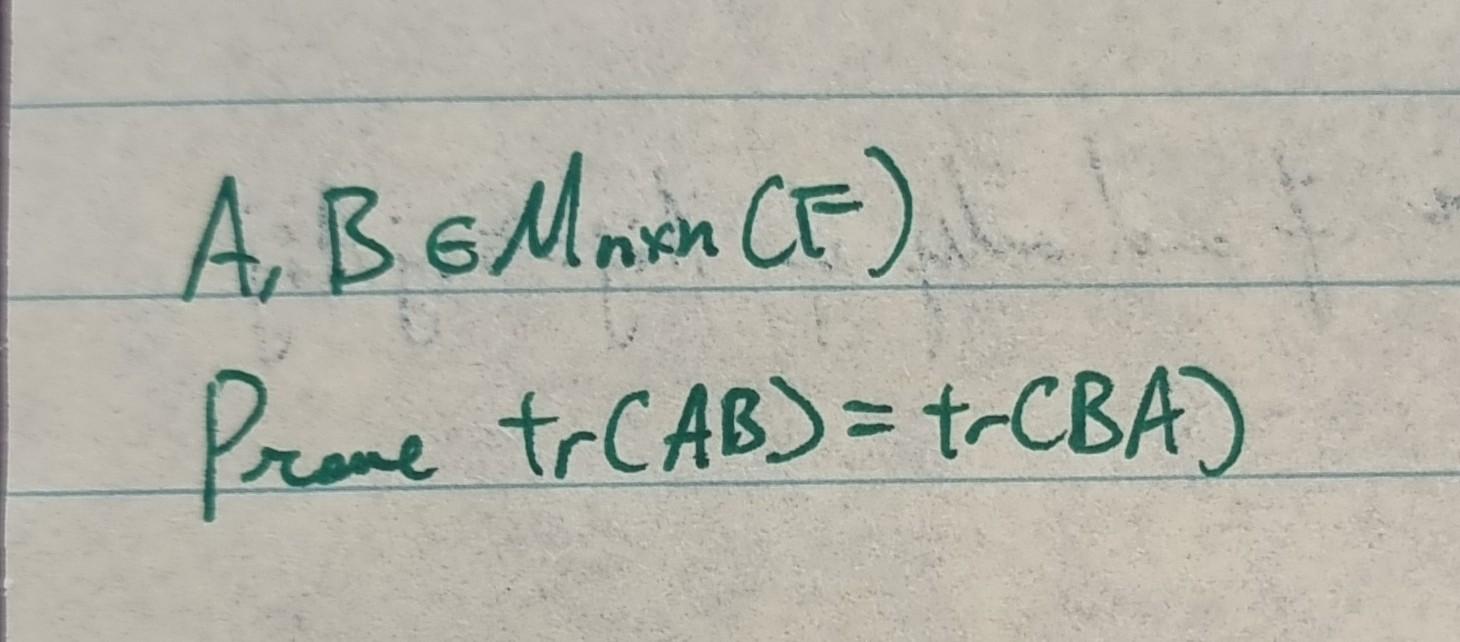 A, B ∈ Mn×n (F)
Prove tr(AB) = tr(BA)